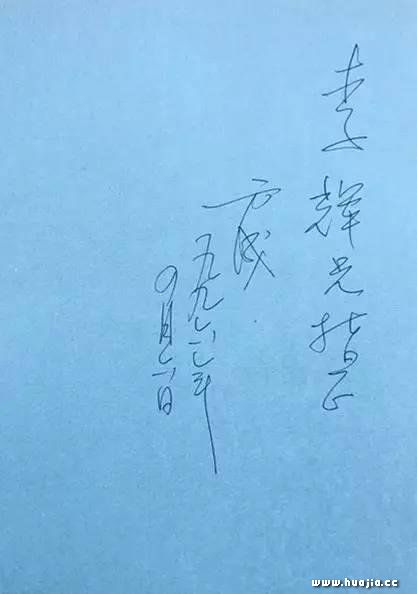 李輝兄指正
方成
一九九六年
四月六日
www.huajia.cc